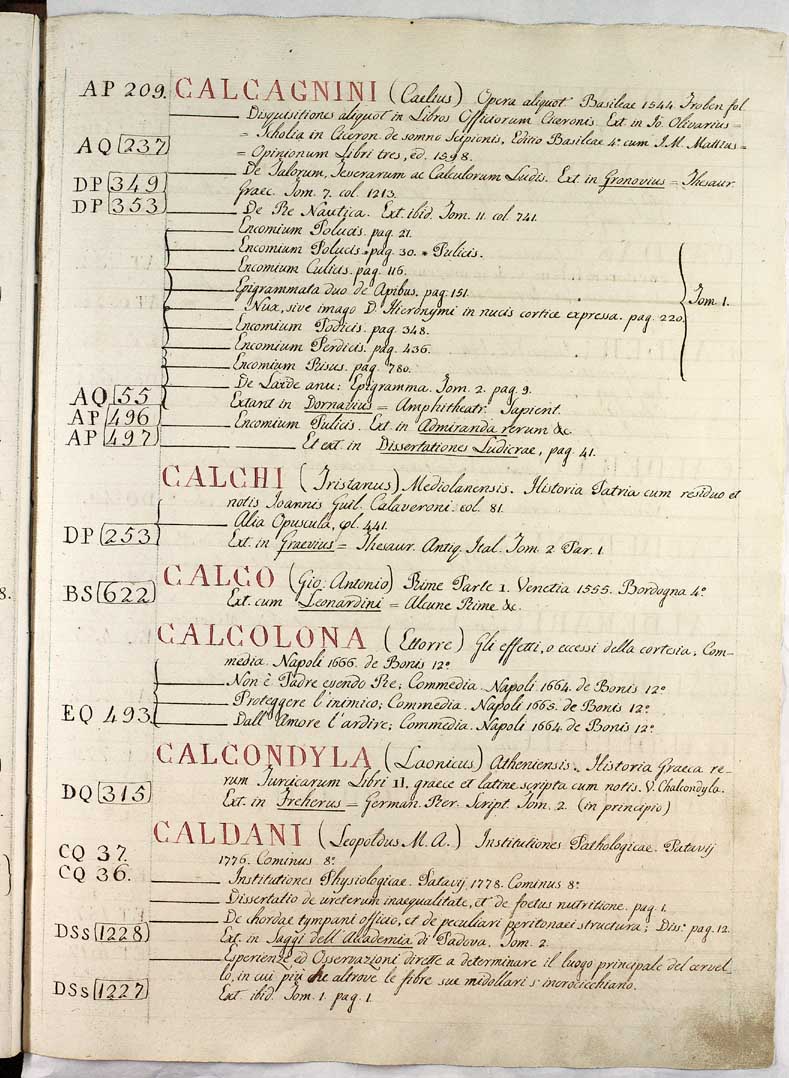 AP 209. CALCAGNINI (Caelius) Opera aliquot Basileae 1544 Froben fol
Disquisitiones aliquot in Libros Officiorum Ciceronis. Ext in Io. Olivarius =
= Scholia in Ciceron. de somno Scipionis, Editio Basileae 4º cum I. M. Mattius =
AQ 237 = Opinionum Libri tres, ed. 1598.
De Talorum, Tesserarum ac Calculorum Ludis. Ext in Gronovius = Thesaur.
DP 349 Graec. Tom. 7. col. 1213.
DP 353 De Re Nautica. Ext. ibid. Tom. 11. col 741.
Encomium Polucis. pag. 21.
Encomium Polucis. pag. 30. Pulicis.
Encomium Culicis. pag. 116.
Epigrammata duo de Apibus. pag. 151.
Nux, sive imago D. Hieronymi in nucis cortice expressa. pag. 220. Tom 1.
Encomium Podicis. pag. 348.
Encomium Perdicis. pag. 436.
Encomium Risus. pag. 780.
De Larde anu: Epigramma. Tom. 2. pag. 9.
AQ 55 Extant in Dornavius = Amphitheatr. Sapient.
AP 496 Encomium Pulicis. Ext. in Admiranda rerum &c.
AP 497 Et ext. in Dissertationes Ludicrae, pag. 41.
CALCHI (Tristanus) Mediolanensis. Historia Patria cum residuo et
notis Ioannis Guil. Calaveroni. col. 81.
Alia Opuscula, col. 441.
DP 253 Ext. in Graevius = Thesaur. Antiq. Ital. Tom. 2 Par. 1.
CALCO (Gio: Antonio) Rime Parte 1. Venetia 1555. Bordogna 4º
BS 622 Ext. cum Leonardini = Alcune Rime &c.
CALCOLONA (Ettorre) Gli effetti, o eccessi della cortesia; Com-
media. Napoli 1666. de Bonis 12º
Non è Padre essendo Re; Commedia. Napoli 1664. de Bonis 12º
Proteggere l'inimico; Commedia. Napoli 1665. de Bonis 12º
EQ 493 Dall' Amore l'ardire; Commedia. Napoli 1664. de Bonis 12º
CALCONDYLA (Laonicus) Atheniensis. Historia Graeca re-
rum Turcicarum Libri II. graece et latine scripta cum notis. V. Chalcondyla.
DQ 315 Ext. in Freherus = German. Rer. Script. Tom. 2. (in principio)
CALDANI (Leopoldus M. A.) Institutiones Pathologicae. Patavij
CQ 37. 1776. Cominus 8º
CQ 36. Institutiones Physiologicae. Patavij 1778. Cominus 8º
Dissertatio de ureterum inaequalitate, et de foetus nutritione. pag. 1.
De chordae tympani officio, et de peculiari peritonaei structura; Diss. pag. 12.
DSs 1228 Ext. in Saggi dell' Accademia di Padova. Tom. 2.
Esperienze ed Osservazioni dirette a determinare il luogo principale del cervel-
lo, in cui più che altrove le fibre sue midollari s' incrocicchiano.
DSs 1227 Ext. ibid. Tom. 1. pag. 1.